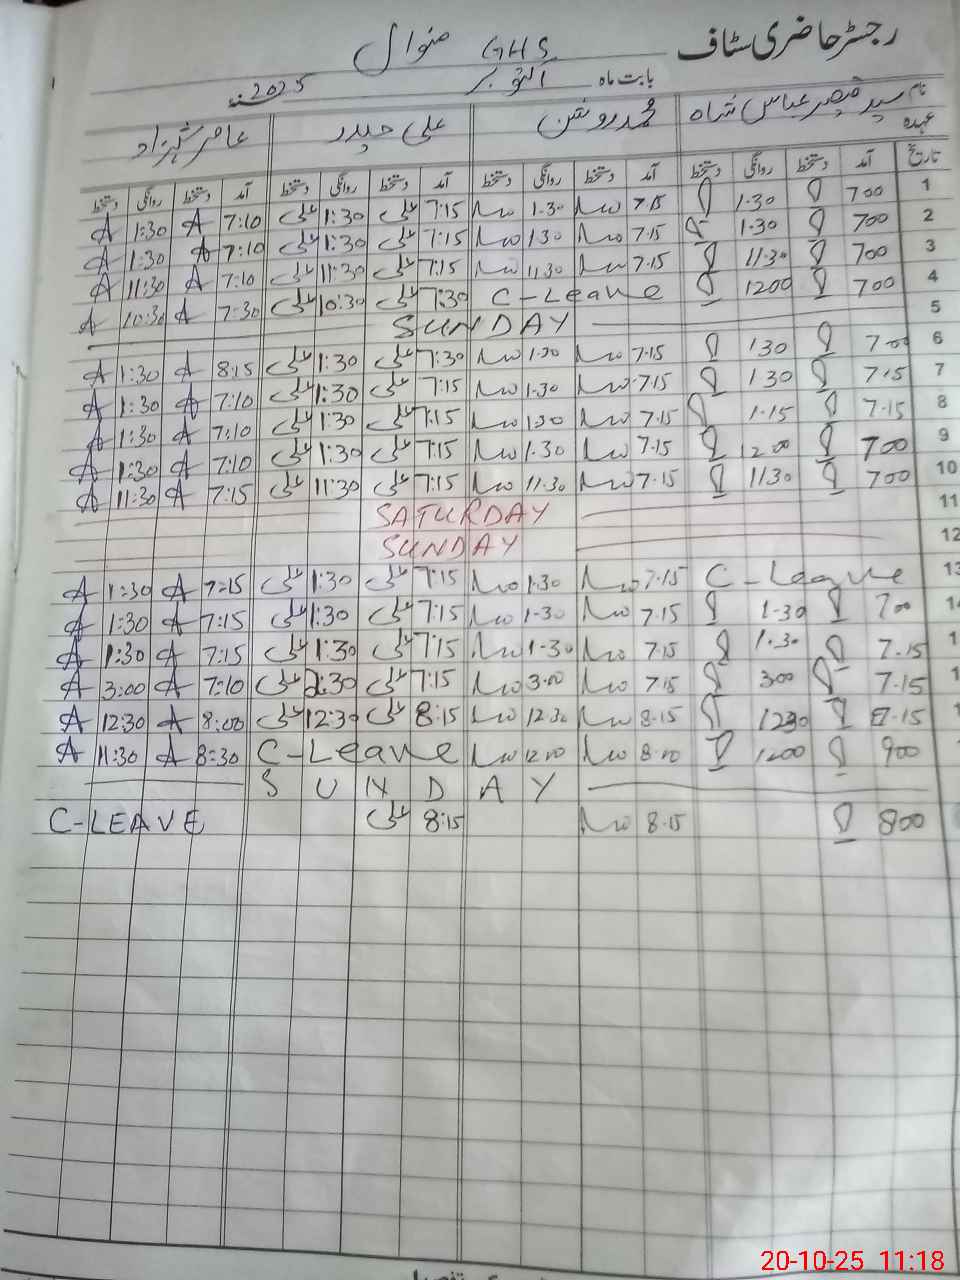 رجسٹر حاضری سٹاف GHS منوال
بابت ماہ اکتوبر سنہ 2025
نام سید قیصر عباس شاہ محمد روشن علی حیدر عامر شہزاد
عہدہ
تاریخ آمد دستخط روانگی دستخط آمد دستخط روانگی دستخط آمد دستخط روانگی دستخط آمد دستخط روانگی دستخط
1 700 1.30 7.15 1.30 7:15 علی 1:30 علی 7:10 A 1:30 A
2 700 1.30 7.15 1.30 7:15 علی 1:30 علی 7:10 A 1:30 A
3 700 11.30 7.15 11.30 7:15 علی 11:30 علی 7:10 A 11:30 A
4 700 1200 C-Leave 7:30 علی 10:30 علی 7:30 A 10:30 A
5 SUNDAY
6 700 130 7.15 1.30 7:30 علی 1:30 علی 8:15 A 1:30 A
7 7.15 130 7.15 1.30 7:15 علی 1:30 علی 7:10 A 1:30 A
8 7.15 1.15 7.15 1.30 7:15 علی 1:30 علی 7:10 A 1:30 A
9 700 1200 7.15 1.30 7:15 علی 1:30 علی 7:10 A 1:30 A
10 700 1130 7.15 11.30 7:15 علی 11:30 علی 7:15 A 11:30 A
11 SATURDAY
12 SUNDAY
13 C-Leave 7.15 1.30 7:15 علی 1:30 علی 7:15 A 1:30 A
1 700 1.30 7.15 1.30 7:15 علی 1:30 علی 7:15 A 1:30 A
1 7.15 1.30 7.15 1.30 7:15 علی 1:30 علی 7:15 A 1:30 A
1 7.15 300 7.15 3.00 7:15 علی 2:30 علی 7:10 A 3:00 A
1 8.15 1230 8.15 12.30 8:15 علی 12:30 علی 8:00 A 12:30 A
900 1200 8.00 12.00 C-Leave 8:30 A 11:30 A
SUNDAY
800 8.15 8:15 علی C-LEAVE
20-10-25 11:18